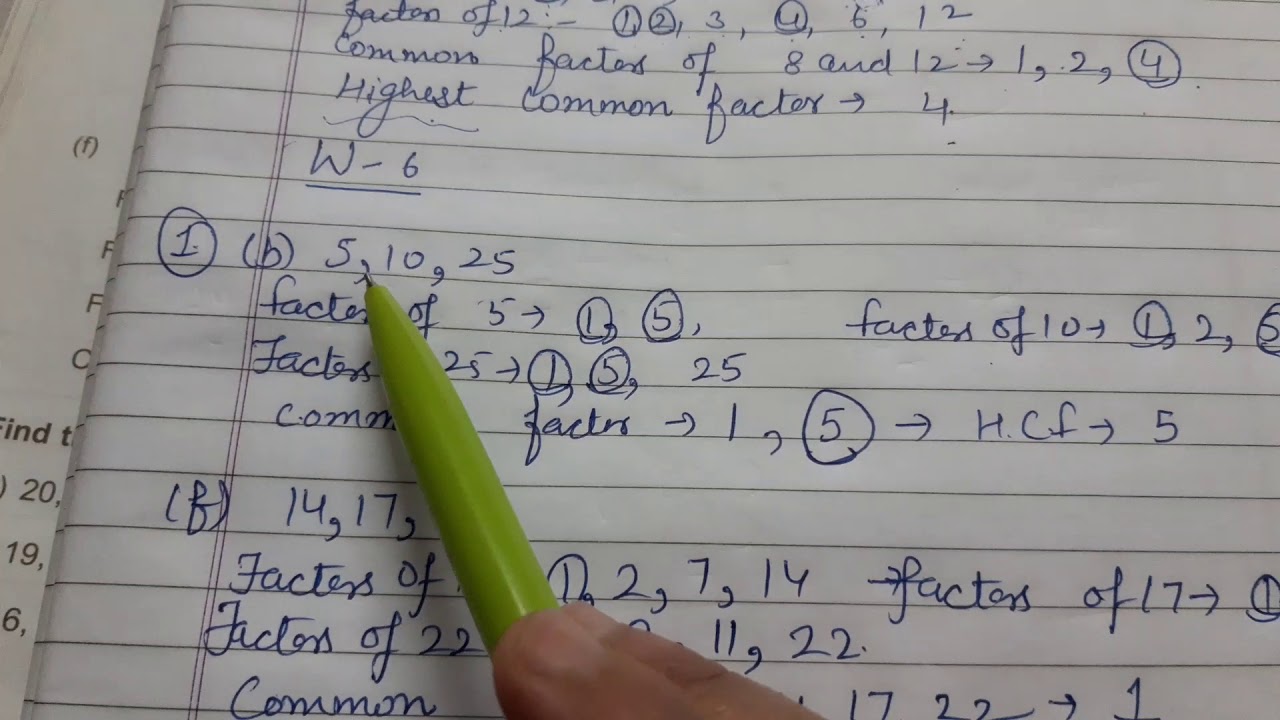 factors of 12:- 1, 2, 3, 4, 6, 12
Common factors of 8 and 12 → 1, 2, 4
Highest common factor → 4.
(f)
W - 6
1. (b) 5, 10, 25
factors of 5 → 1, 5, factors of 10 → 1, 2, 5
Factors 25 → 1, 5, 25
factor → 1, 5 → H.C.f → 5
Find t
(f) 14, 17,
) 20,
Factors of 1, 2, 7, 14 → factors of 17 → 1
19,
Factors of 22 11, 22.
6,
Common 17, 22 → 1